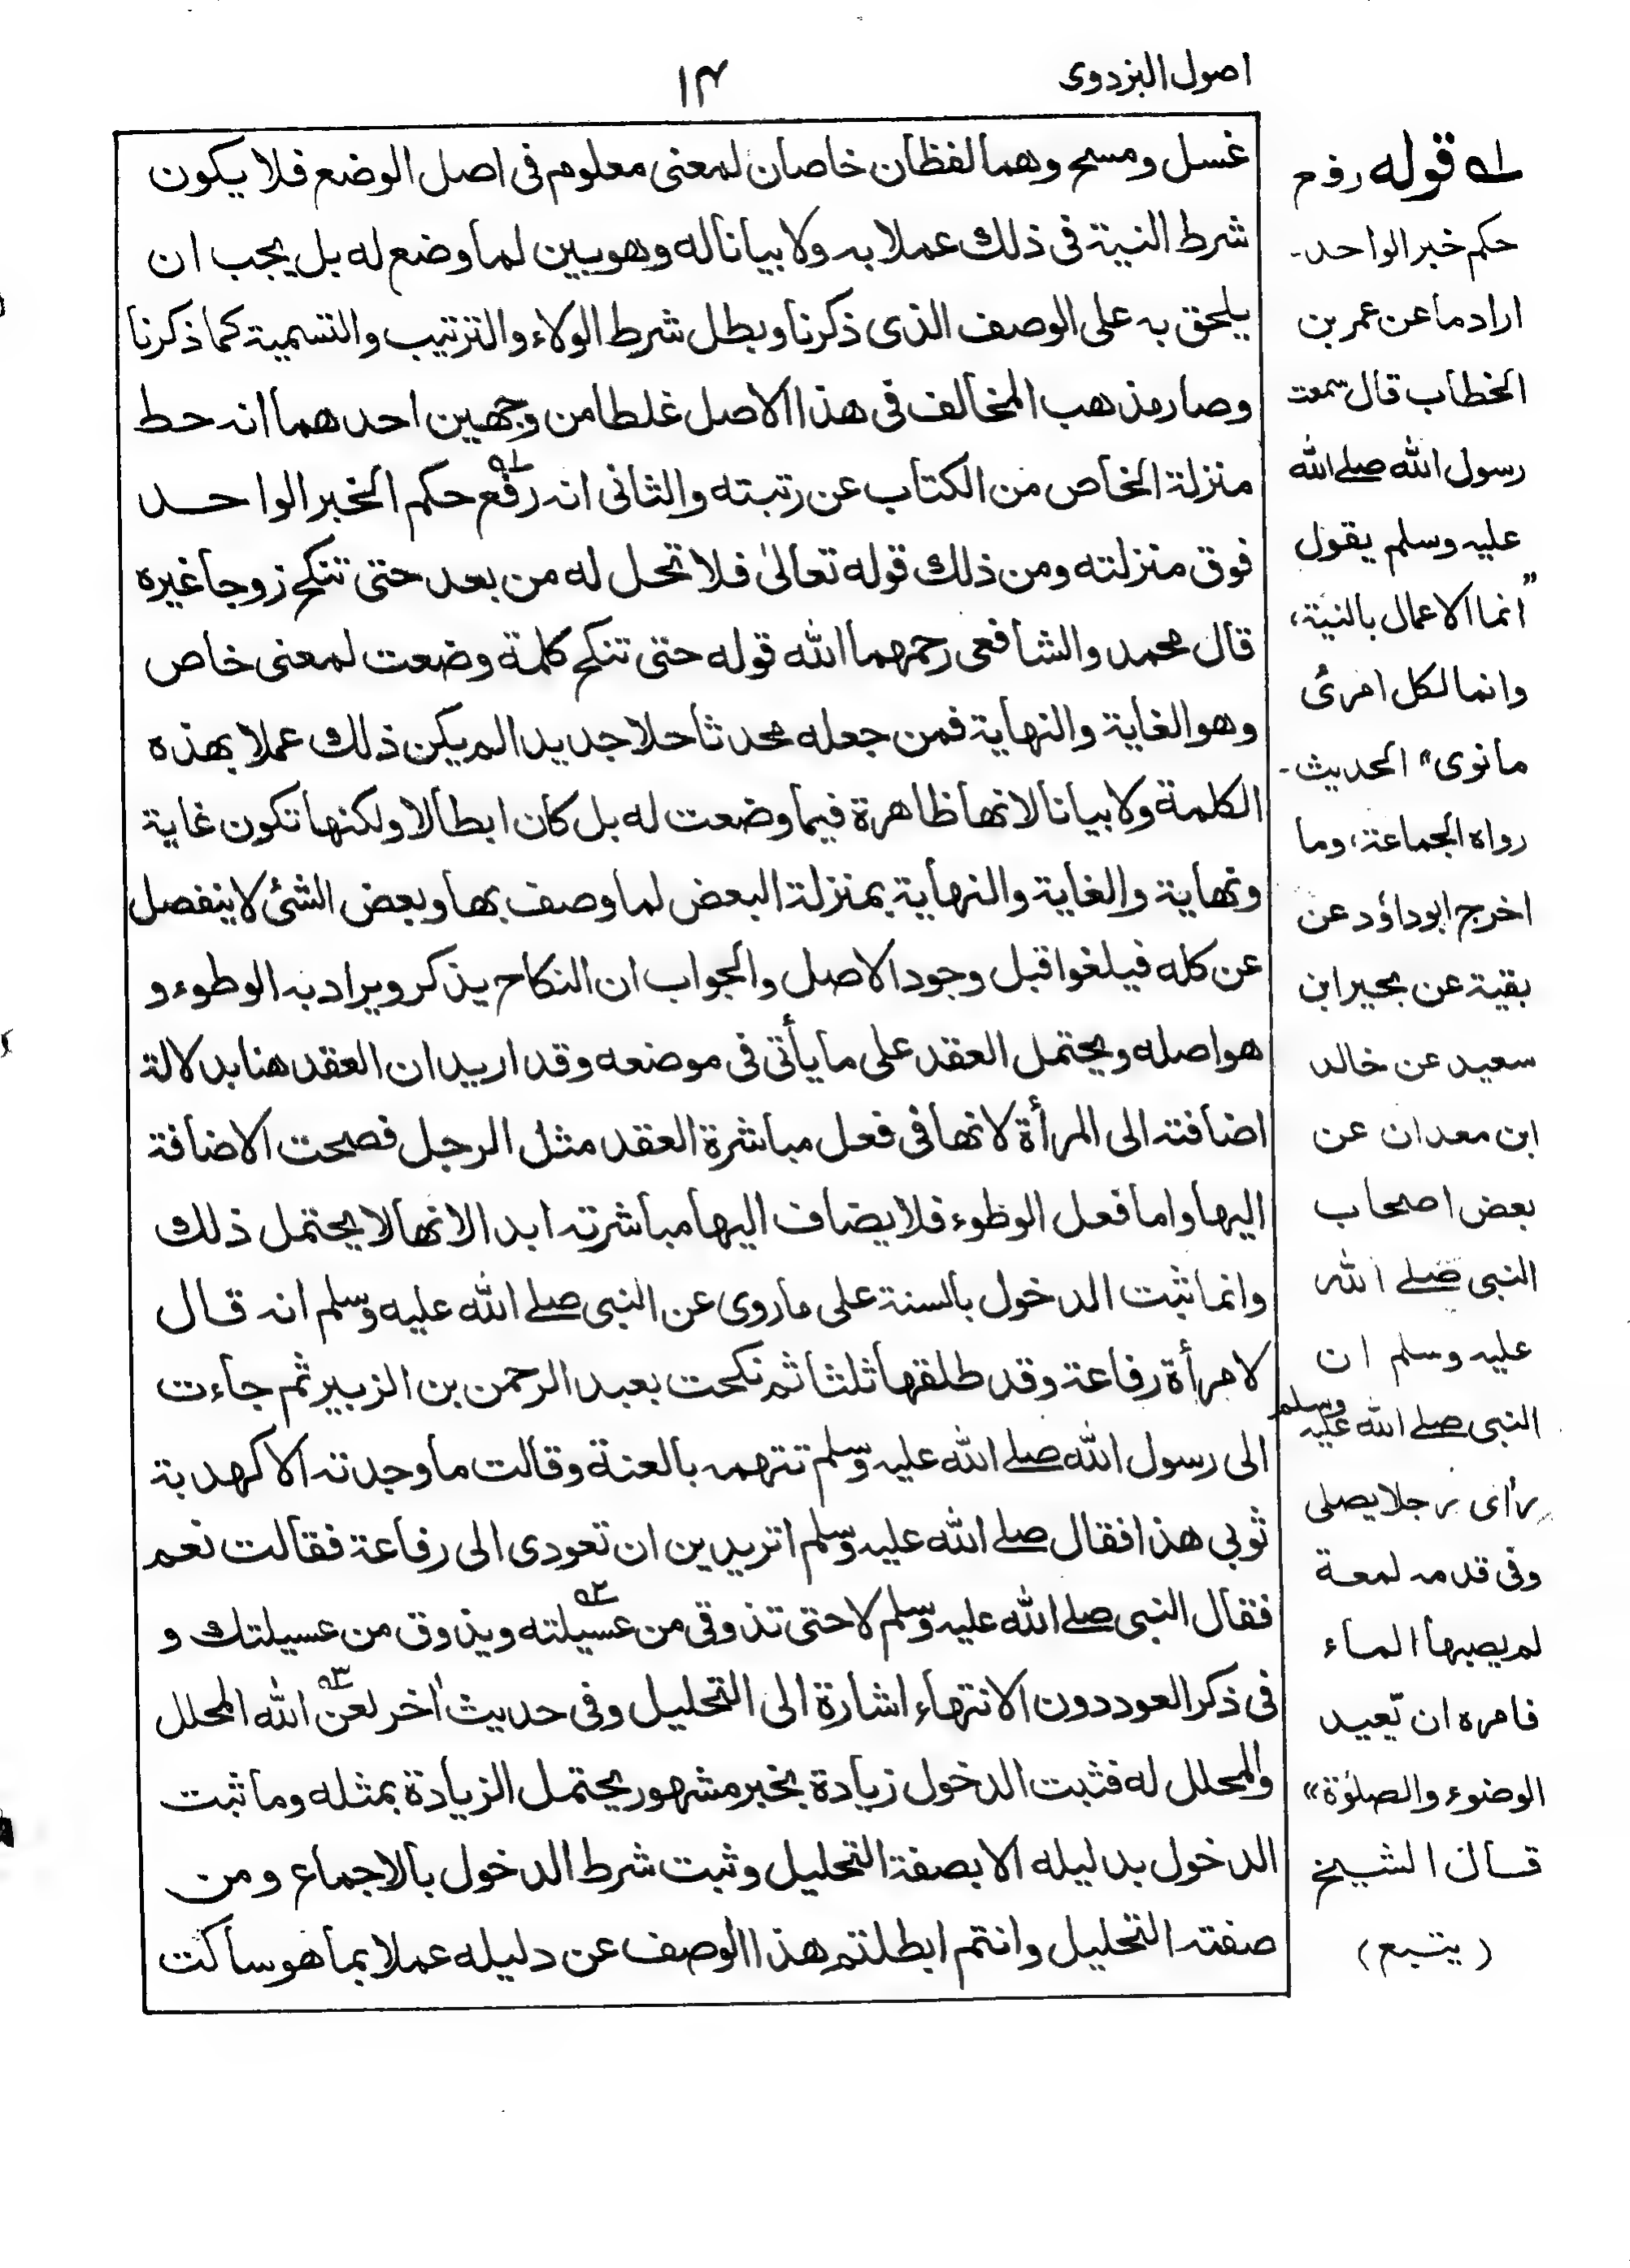 اصول البزدوی
۱۴
غسل ومسح وهما لفظان خاصان لمعنى معلوم فى اصل الوضع فلا يكون
شرط النية فى ذلك عملا به ولا بيانا له وهو بين لما وضع له بل يجب ان
يلحق به على الوصف الذى ذكرنا وبطل شرط الولاء والترتيب والتسمية كما ذكرنا
وصار مذهب المخالف فى هذا الاصل غلطا من وجهين احدهما انه حط
منزلة الخاص من الكتاب عن رتبته والثانى انه رفع حكم الخبر الواحد
فوق منزلته ومن ذلك قوله تعالىٰ فلا تحل له من بعد حتى تنكح زوجا غيره
قال محمد والشافعى رحمهما الله قوله حتى تنكح كلمة وضعت لمعنى خاص
وهو الغاية والنهاية فمن جعله محدثا حلا جديدا لم يكن ذلك عملا بهذه
الكلمة ولا بيانا لانها ظاهرة فيما وضعت له بل كان ابطالا ولكنها تكون غاية
ونهاية والغاية والنهاية بمنزلة البعض لما وصف بها وبعض الشئ لا ينفصل
عن كله فيلغوا قبل وجود الاصل والجواب ان النكاح يذكر ويراد به الوطوء و
هو اصله ويحتمل العقد على ما يأتى فى موضعه وقد اريد ان العقد هنا بدلالة
اضافته الى المرأة لانها فى فعل مباشرة العقد مثل الرجل فصحت الاضافة
اليها واما فعل الوطوء فلا يضاف اليها مباشرته ابدا لانها لا يحتمل ذلك
وانما ثبت الدخول بالسنة على ما روى عن النبى صلے الله عليه وسلم انه قال
لامرأة رفاعة وقد طلقها ثلثا ثم نكحت بعبد الرحمن بن الزبير ثم جاءت
الى رسول الله صلے الله عليه وسلم تتهمه بالعنة وقالت ما وجدته الا كهدبة
ثوبى هذا فقال صلے الله عليه وسلم اتريدين ان تعودى الى رفاعة فقالت نعم
فقال النبى صلے الله عليه وسلم لا حتى تذوقى من عسيلته ويذوق من عسيلتك و
فى ذكر العود دون الانتهاء اشارة الى التحليل وفى حديث اٰخر لعن الله المحلل
والمحلل له فثبت الدخول زيادة بخبر مشهور يحتمل الزيادة بمثله وما ثبت
الدخول بدليله الا بصفة التحليل وثبت شرط الدخول بالاجماع ومن
صفته التحليل وانتم ابطلتم هذا الوصف عن دليله عملا بما هو ساكت
له قوله رفع
حكم خبر الواحد۔
اراد ما عن عمر بن
الخطاب قال سمعت
رسول الله صلے الله
عليه وسلم يقول
”انما الاعمال بالنية،
وانما لكل امرئ
ما نوى“ الحديث۔
رواه الجماعة، وما
اخرج ابوداؤد عن
بقية عن بحير ابن
سعيد عن خالد
ابن معدان عن
بعض اصحاب
النبى صلے الله
عليه وسلم ان
النبى صلے الله عليه وسلم
رأى رجلا يصلى
وفى قدمه لمعة
لم يصبها الماء
فامره ان يعيد
الوضوء والصلوٰة“
قال الشيخ
(يتبع)